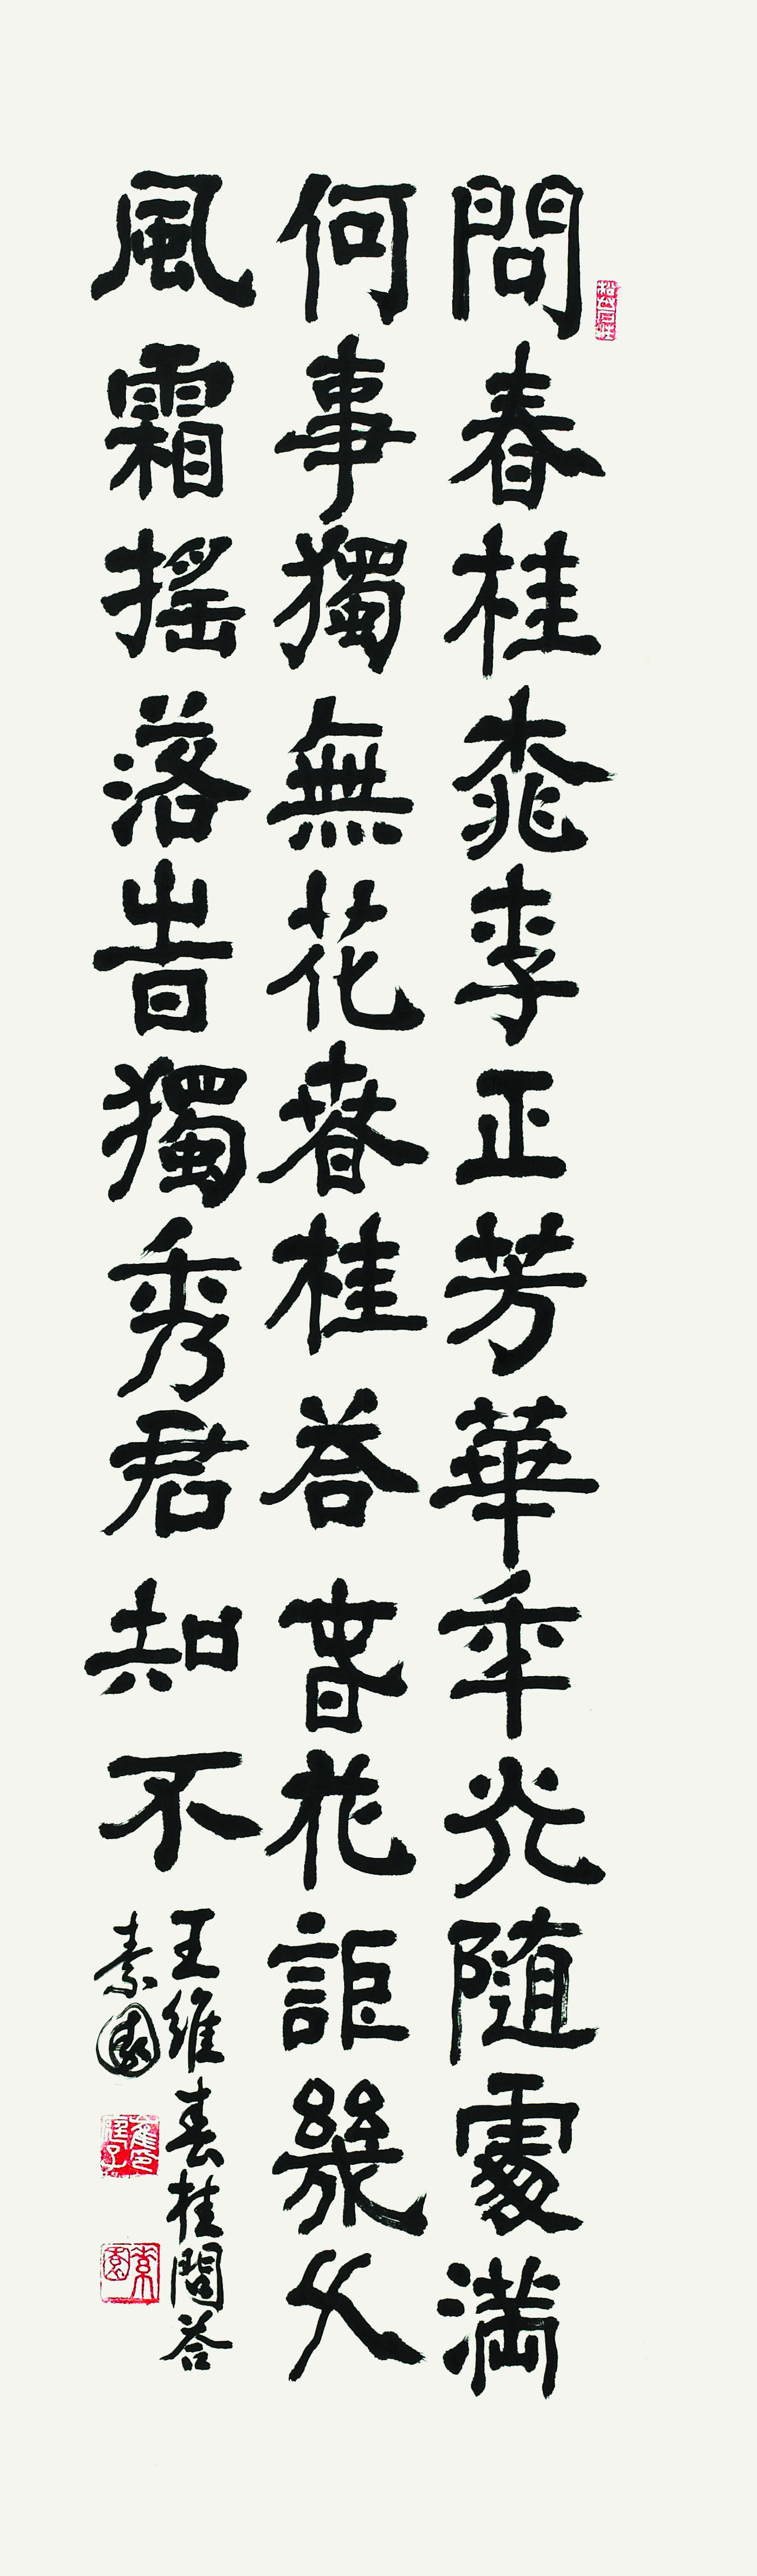 問春桂桃李正芳華年光隨處滿
何事獨無花春桂荅春花詎幾久
風霜搖落旹獨秀君知不
王維春桂問荅
素園
素園